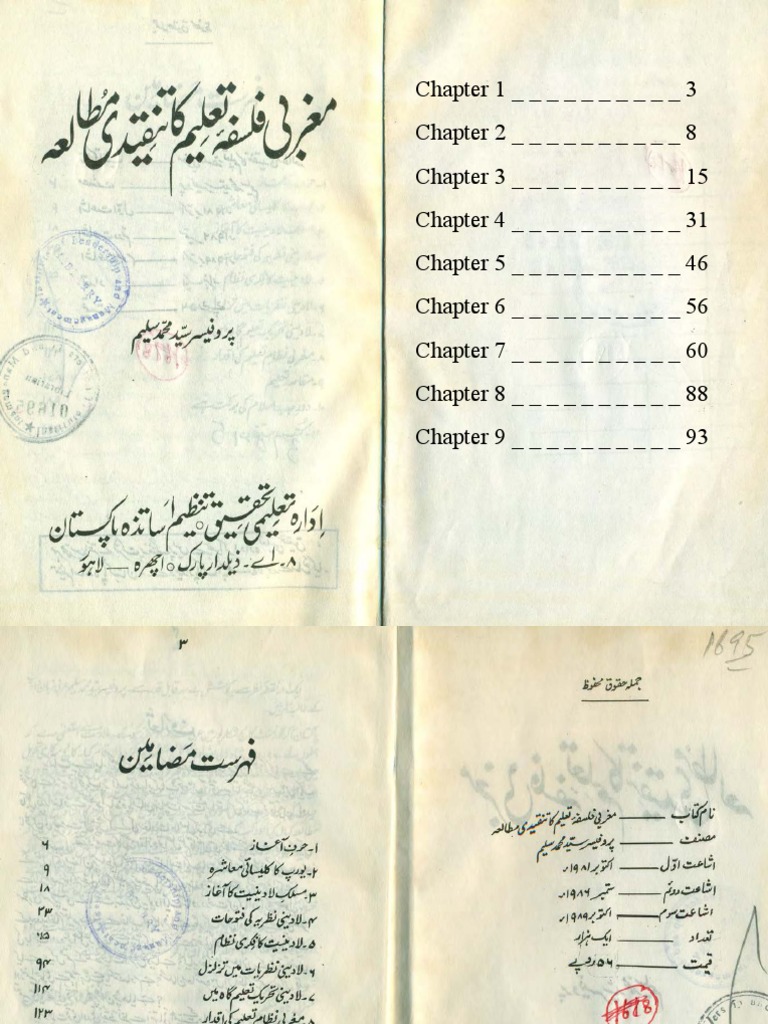 مغربی فلسفۂ تعلیم کا تنقیدی مطالعہ
پروفیسر سید محمد سلیم
ادارہ تعلیمی تحقیق ○ تنظیم اساتذہ پاکستان
۸۔ اے۔ ذیلدار پارک ○ اچھرہ — لاہور
Chapter 1 _ _ _ _ _ _ _ _ _ _ 3
Chapter 2 _ _ _ _ _ _ _ _ _ _ 8
Chapter 3 _ _ _ _ _ _ _ _ _ _ 15
Chapter 4 _ _ _ _ _ _ _ _ _ _ 31
Chapter 5 _ _ _ _ _ _ _ _ _ _ 46
Chapter 6 _ _ _ _ _ _ _ _ _ _ 56
Chapter 7 _ _ _ _ _ _ _ _ _ _ 60
Chapter 8 _ _ _ _ _ _ _ _ _ _ 88
Chapter 9 _ _ _ _ _ _ _ _ _ _ 93
1695
جملہ حقوق محفوظ
نام کتاب —— مغربی فلسفۂ تعلیم کا تنقیدی مطالعہ
مصنف —— پروفیسر سید محمد سلیم
اشاعت اول —— اکتوبر ۱۹۸۱ء
اشاعت دوئم —— ستمبر ۱۹۸۶ء
اشاعت سوم —— اکتوبر ۱۹۸۹ء
تعداد —— ایک ہزار
قیمت —— ۵۶ روپے
1688
۳
فہرست مضامین
۱۔ حرف آغاز ۶
۲۔ یورپ کا کلیسائی معاشرہ ۹
۳۔ مسلک لادینیت کا آغاز ۱۸
۴۔ لادینی نظریہ کی فتوحات ۲۳
۵۔ لادینیت کا فکری نظام
۶۔ لادینی نظریات میں تزلزل ۹۴
۷۔ لادینی تحریک تعلیم گاہ میں ۱۱۴
۸۔ مغربی نظام تعلیم کی اقدار ۱۲۳